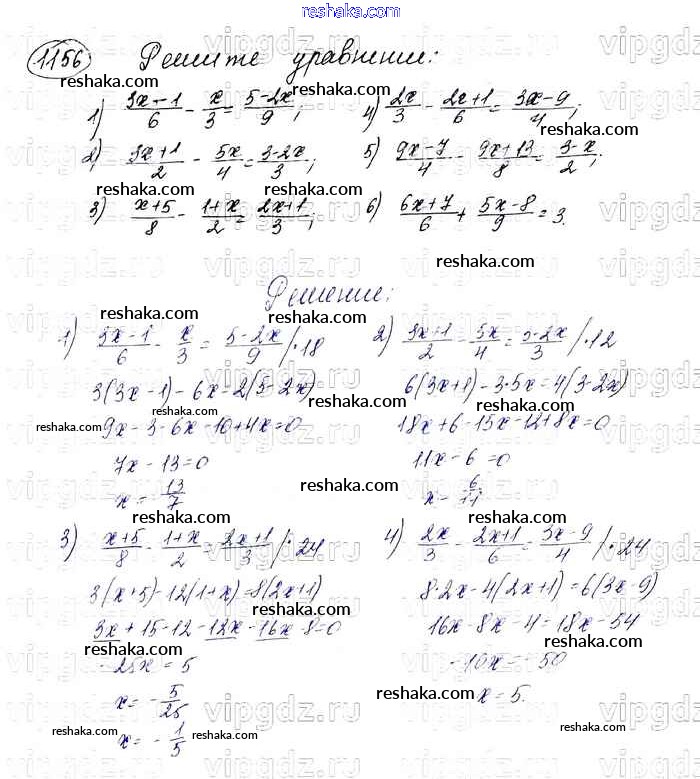 reshaka.com
1156 Решите уравнении:
reshaka.com
1) 3x-1/6 - x/3 = 5-2x/9; 4) 2x/3 - 2x+1/6 = 3x-9/4;
reshaka.com reshaka.com
2) 3x+1/2 - 5x/4 = 3-2x/3; 5) 9x-7/4 - 9x+13/8 = 3-x/2;
reshaka.com reshaka.com
3) x+5/8 - 1+x/2 = 2x+1/3; 6) 6x+7/6 + 5x-8/9 = 3.
reshaka.com
Решение:
reshaka.com reshaka.com
1) 3x-1/6 - x/3 = 5-2x/9 /·18 2) 3x+1/2 - 5x/4 = 3-2x/3 /·12
reshaka.com
3(3x-1)-6x-2(5-2x) 6(3x+1)-3·5x=4(3-2x)
reshaka.com reshaka.com
reshaka.com reshaka.com
9x-3-6x-10+4x=0 18x+6-15x-12+8x=0
7x-13=0 11x-6=0
reshaka.com reshaka.com
x=13/7 x=6/11
reshaka.com reshaka.com
3) x+5/8 - 1+x/2 = 2x+1/3 /·24 4) 2x/3 - 2x+1/6 = 3x-9/4 /·24
3(x+5)-12(1+x)=8(2x+1) 8·2x-4(2x+1)=6(3x-9)
reshaka.com
3x+15-12-12x-16x-8=0 16x-8x-4=18x-54
reshaka.com
-25x=5 -10x=-50
reshaka.com
x=-5/25 x=5.
reshaka.com
reshaka.com reshaka.com
x=-1/5
vipgdz.ru